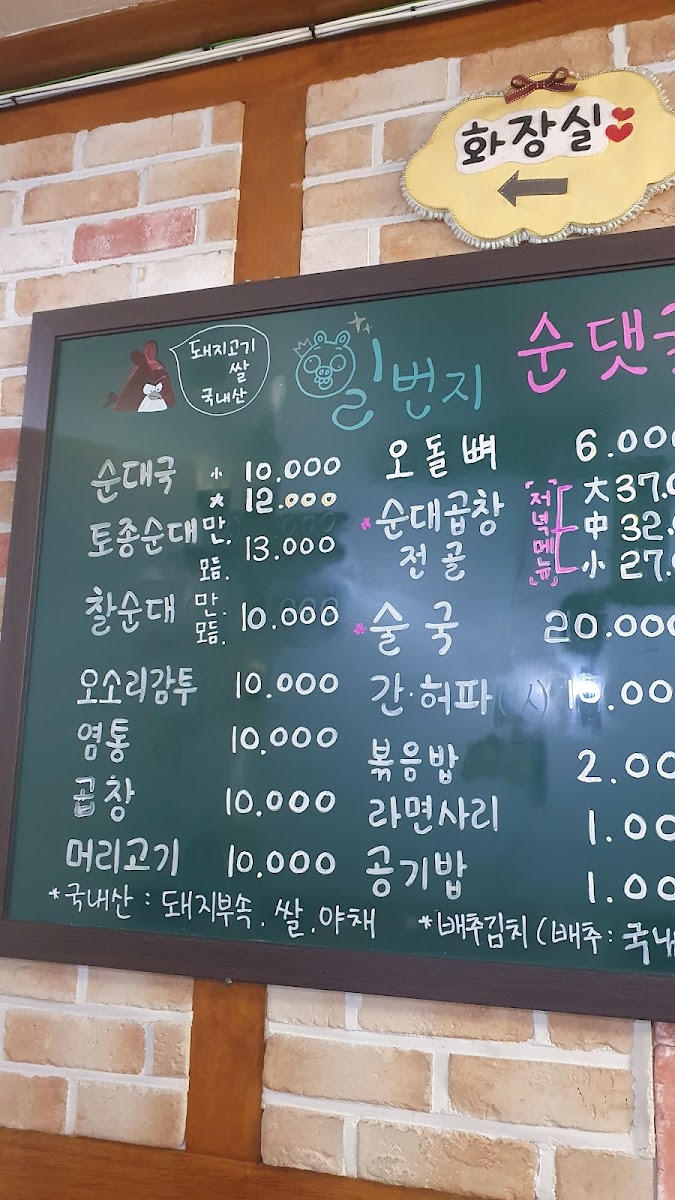 화장실
돼지고기
쌀
국내산
일번지
순댓국
순대국 小 10.000
大 12.000
토종순대 만. 모듬. 13.000
찰순대 만. 모듬. 10.000
오소리감투 10.000
염통 10.000
곱창 10.000
머리고기 10.000
오돌뼈 6.000
*순대곱창전골 저녁메뉴
大 37.0
中 32.
小 27.
*술국 20.000
간·허파 10.00
볶음밥 2.00
라면사리 1.00
공기밥 1.00
*국내산 : 돼지부속. 쌀. 야채
*배추김치 (배추: 국내